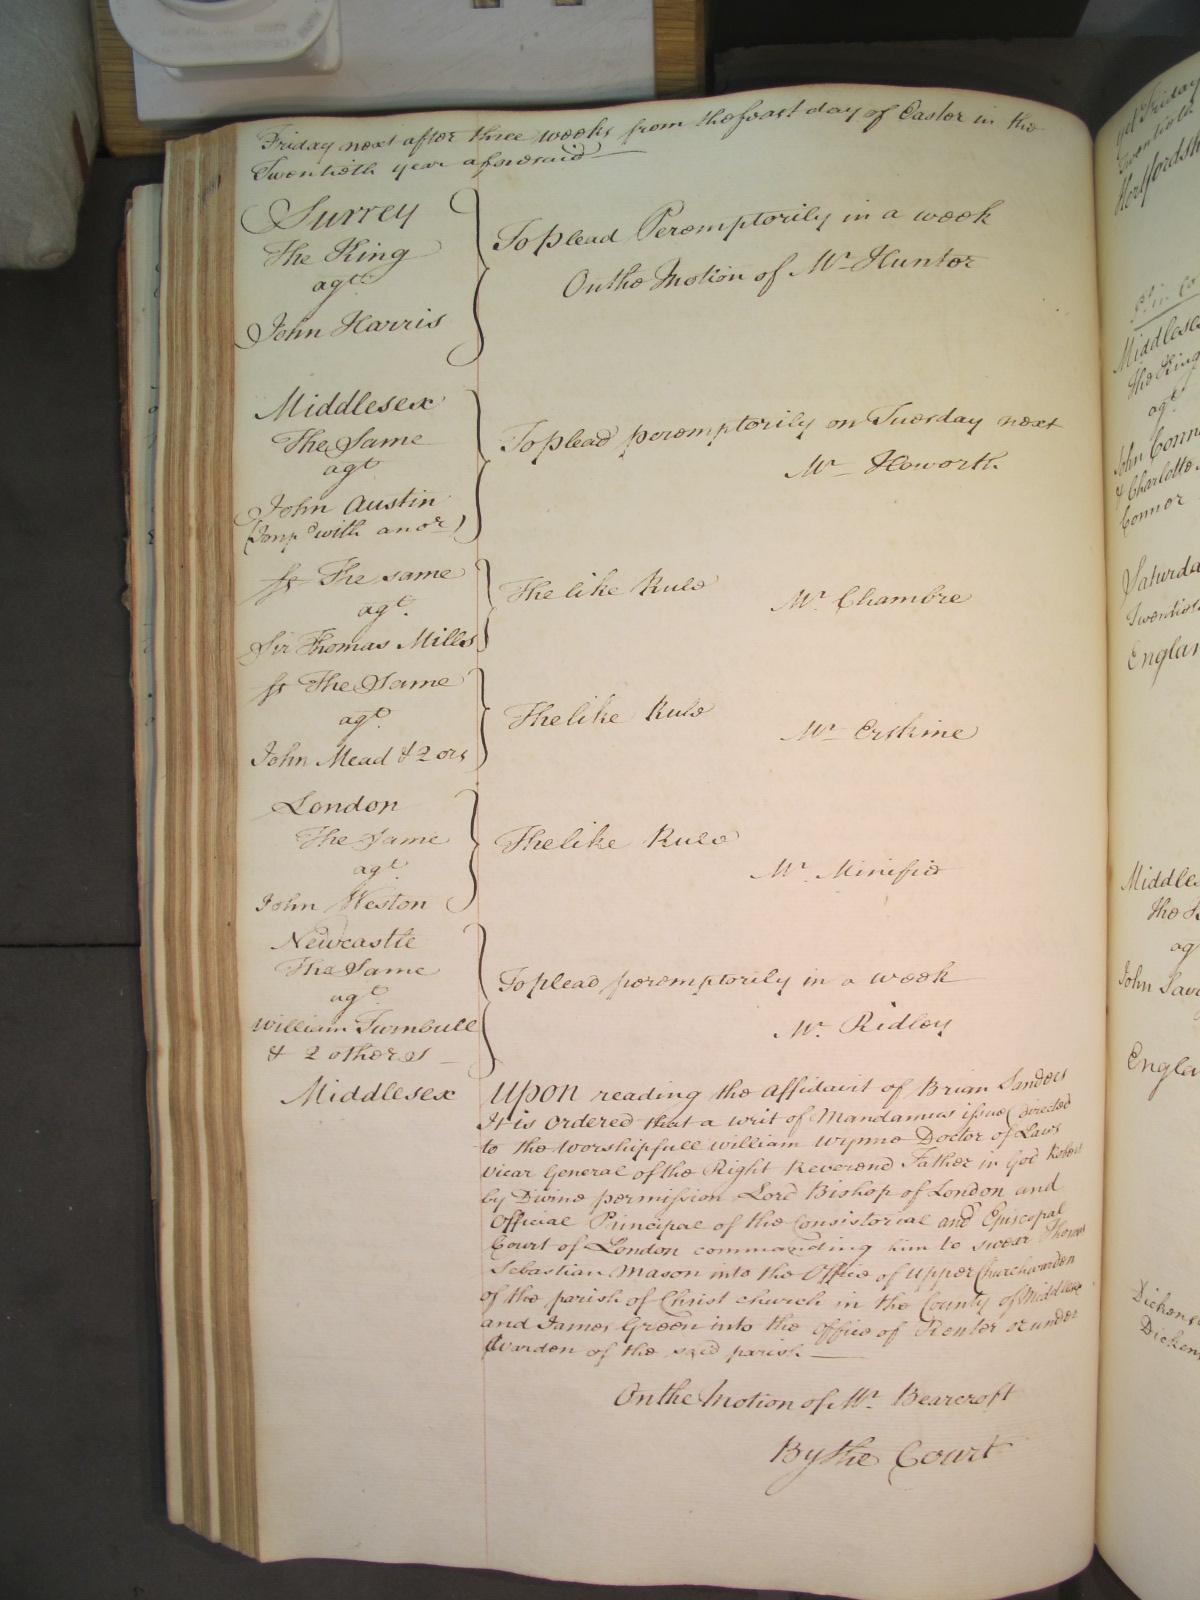 Friday next after three weeks from the feast day of Easter in the
Twentieth year aforesaid
Surrey
The King
agt
John Harris
To plead Peremptorily in a week
On the Motion of Mr Hunter
Middlesex
The Same
agt
John Austin
(Imp.d with anor)
To plead peremptorily on Tuesday next
Mr Howorth
ss The same
agt.
Sir Thomas Mills
The like Rule
Mr Chambre
ss The Same
agt.
John Mead & 2 ors
The like Rule
Mr Erskine
London
The Same
agt.
John Weston
The like Rule
Mr Minifie
Newcastle
The Same
agt.
William Turnbull
& 2 others
To plead peremptorily in a week
Mr Ridley
Middlesex
Upon reading the affidavit of Brian Sanders
It is Ordered that a writ of Mandamus issue directed
to the Worshipfull William Wynne Doctor of Laws
Vicar General of the Right Reverend Father in God Robert
by Divine permission Lord Bishop of London and
Official Principal of the Consistorial and Episcopal
Court of London commanding him to swear Thomas
Sebastian Mason into the Office of Upper Churchwarden
of the parish of Christ church in the County of Middlesex
and James Green into the Office of Renter or under
Warden of the said parish
On the Motion of Mr. Bearcroft
By the Court
Hertfordsh
Middlesex
The King
agt
John Conn
& Charlotte
Connor
Saturda
Twentieth
Englan
Middle
The K
ag
John Sav
Engla